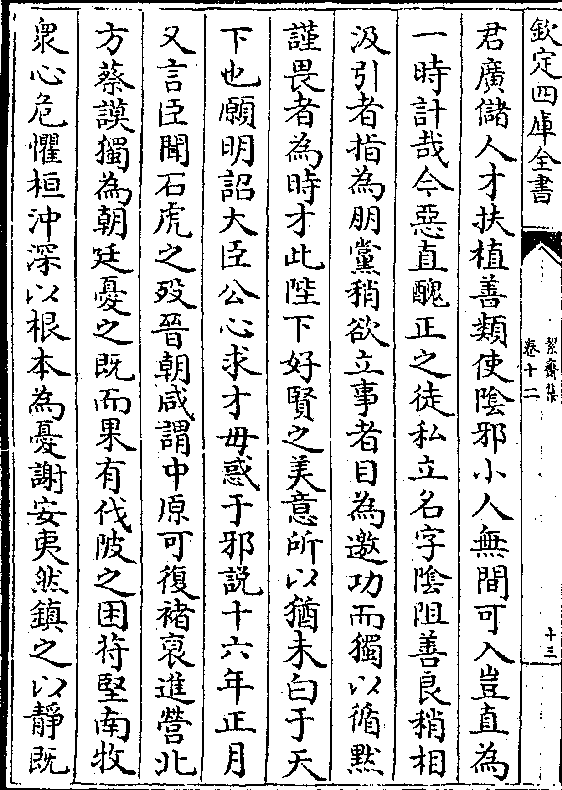 欽定四庫全書
絜齋集
卷十二
十三
君廣儲人才扶植善類使陰邪小人無間可入豈直為
一時計哉今惡直醜正之徒私立名字陰阻善良稍相
汲引者指為朋黨稍欲立事者目為邀功而獨以循默
謹畏者為時才此陛下好賢之美意所以猶未白于天
下也願明詔大臣公心求才毋惑于邪說十六年正月
又言臣聞石虎之殁晉朝咸謂中原可復褚裒進營北
方蔡謨獨為朝廷憂之既而果有代陂之困苻堅南牧
衆心危懼桓沖深以根本為憂謝安夷然鎮之以靜既